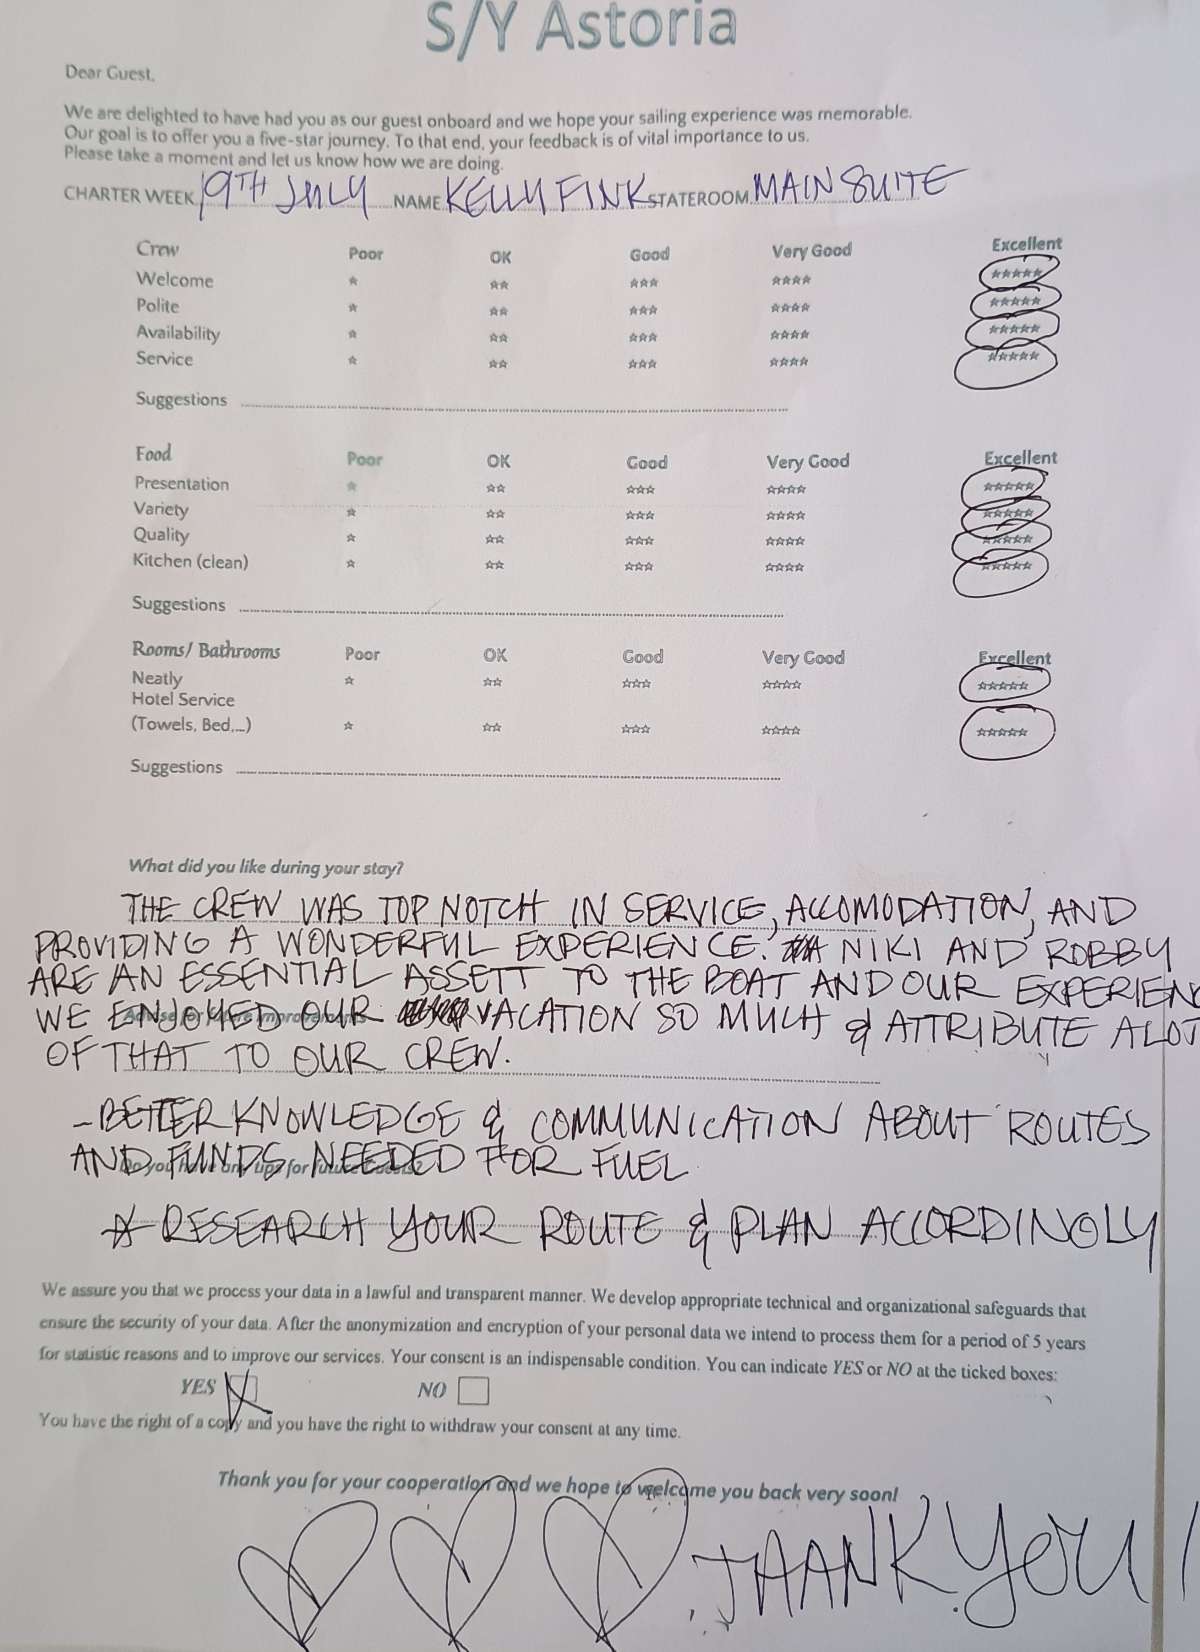 S/Y Astoria
Dear Guest,
We are delighted to have had you as our guest onboard and we hope your sailing experience was memorable.
Our goal is to offer you a five-star journey. To that end, your feedback is of vital importance to us.
Please take a moment and let us know how we are doing.
CHARTER WEEK 19TH JULY NAME KELLY FINK STATEROOM MAIN SUITE
Crew Poor OK Good Very Good Excellent
Welcome ☆ ☆☆ ☆☆☆ ☆☆☆☆ ☆☆☆☆☆
Polite ☆ ☆☆ ☆☆☆ ☆☆☆☆ ☆☆☆☆☆
Availability ☆ ☆☆ ☆☆☆ ☆☆☆☆ ☆☆☆☆☆
Service ☆ ☆☆ ☆☆☆ ☆☆☆☆ ☆☆☆☆☆
Suggestions
Food Poor OK Good Very Good Excellent
Presentation ☆ ☆☆ ☆☆☆ ☆☆☆☆ ☆☆☆☆☆
Variety ☆ ☆☆ ☆☆☆ ☆☆☆☆ ☆☆☆☆☆
Quality ☆ ☆☆ ☆☆☆ ☆☆☆☆ ☆☆☆☆☆
Kitchen (clean) ☆ ☆☆ ☆☆☆ ☆☆☆☆ ☆☆☆☆☆
Suggestions
Rooms/ Bathrooms Poor OK Good Very Good Excellent
Neatly ☆ ☆☆ ☆☆☆ ☆☆☆☆ ☆☆☆☆☆
Hotel Service
(Towels, Bed,...) ☆ ☆☆ ☆☆☆ ☆☆☆☆ ☆☆☆☆☆
Suggestions
What did you like during your stay?
THE CREW WAS TOP NOTCH IN SERVICE, ACCOMODATION, AND
PROVIDING A WONDERFUL EXPERIENCE. NIKI AND ROBBY
ARE AN ESSENTIAL ASSETT TO THE BOAT AND OUR EXPERIENC
WE ENJOYED OUR VACATION SO MUCH & ATTRIBUTE A LOT
OF THAT TO OUR CREW.
- BETTER KNOWLEDGE & COMMUNICATION ABOUT ROUTES
AND FUNDS NEEDED FOR FUEL
Do you have any tips for future Guests?
☆ RESEARCH YOUR ROUTE & PLAN ACCORDINGLY
We assure you that we process your data in a lawful and transparent manner. We develop appropriate technical and organizational safeguards that
ensure the security of your data. After the anonymization and encryption of your personal data we intend to process them for a period of 5 years
for statistic reasons and to improve our services. Your consent is an indispensable condition. You can indicate YES or NO at the ticked boxes:
YES NO
You have the right of a copy and you have the right to withdraw your consent at any time.
Thank you for your cooperation and we hope to welcome you back very soon!
THANK YOU!